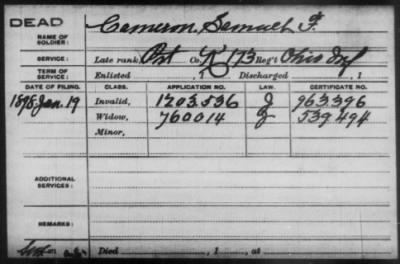 DEAD
NAME OF SOLDIER: Cameron, Samuel F.
SERVICE: Late rank, Pvt Co. K, 173 Reg't Ohio Inf
TERM OF SERVICE: Enlisted , 1 Discharged , 1
DATE OF FILING. CLASS. APPLICATION NO. LAW. CERTIFICATE NO.
1898 Jan. 19 Invalid, 1203.536 J 963.396
Widow, 760014 J 539.494
Minor,
ADDITIONAL SERVICES:
REMARKS:
Died , 1 , at